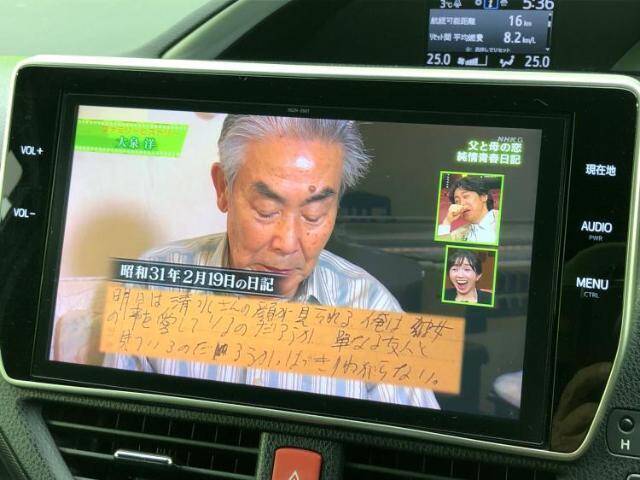 3℃ 5:36
航続可能距離 16 km
リセット間 平均燃費 8.2 km/L
25.0 25.0
VOL+
VOL-
NHK G
大泉 洋
父と母の恋
純情青春日記
昭和31年2月19日の日記
明日は清水さんの顔が見られる 俺は彼女
の事を愛しているのだろうか 単なる友人と
見ているのだろうか はっきりわからない。
現在地
AUDIO
PWR
MENU
CTRL
H